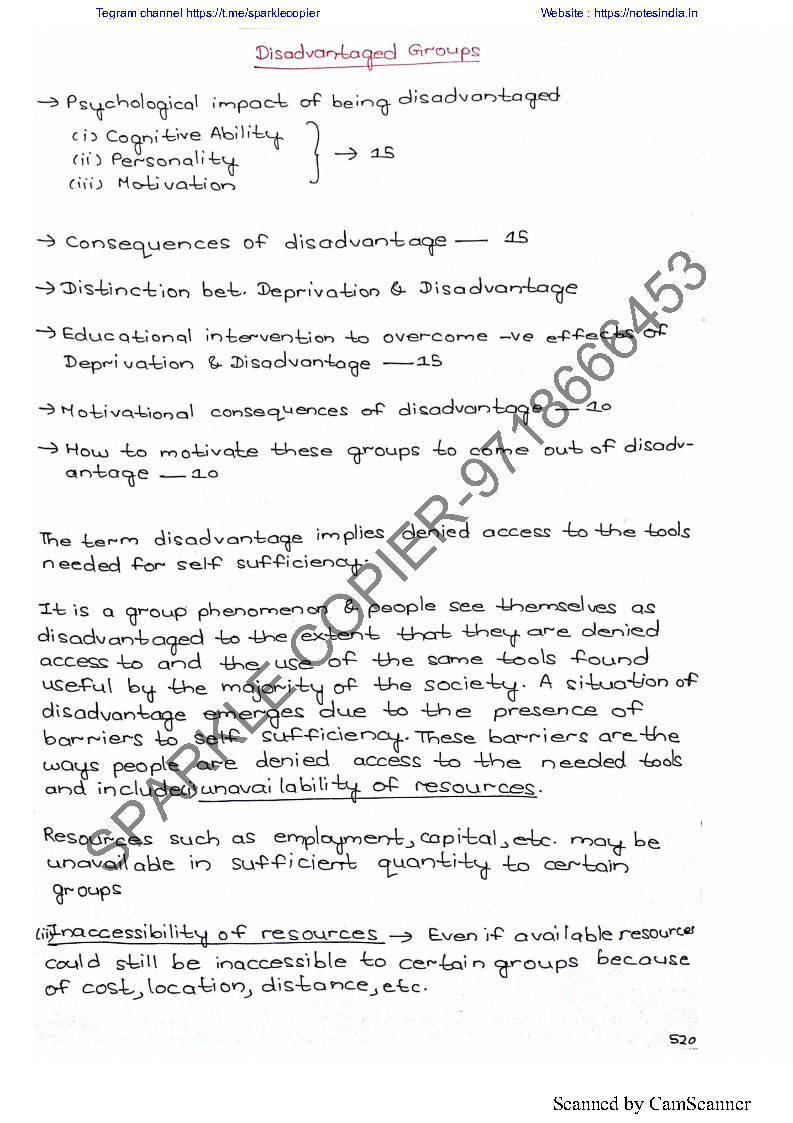 Tegram channel https://t.me/sparklecopier
Website : https://notesindia.in
Disadvantaged Groups
→ Psychological impact of being disadvantaged
(i) Cognitive Ability
(ii) Personality
(iii) Motivation
→ 15
→ Consequences of disadvantage — 15
→ Distinction bet. Deprivation & Disadvantage
→ Educational intervention to overcome -ve effects of
Deprivation & Disadvantage — 15
→ Motivational consequences of disadvantage — 10
→ How to motivate these groups to come out of disadv-
antage — 10
The term disadvantage implies denied access to the tools
needed for self sufficiency.
It is a group phenomenon & people see themselves as
disadvantaged to the extent that they are denied
access to and the use of the same tools found
useful by the majority of the society. A situation of
disadvantage emerges due to the presence of
barriers to self sufficiency. These barriers are the
ways people are denied access to the needed tools
and include(i) unavailability of resources.
Resources such as employment, capital, etc. may be
unavailable in sufficient quantity to certain
groups
(ii) Inaccessibility of resources → Even if available resources
could still be inaccessible to certain groups because
of cost, location, distance, etc.
520
SPARKLE COPIER-9718666453
Scanned by CamScanner